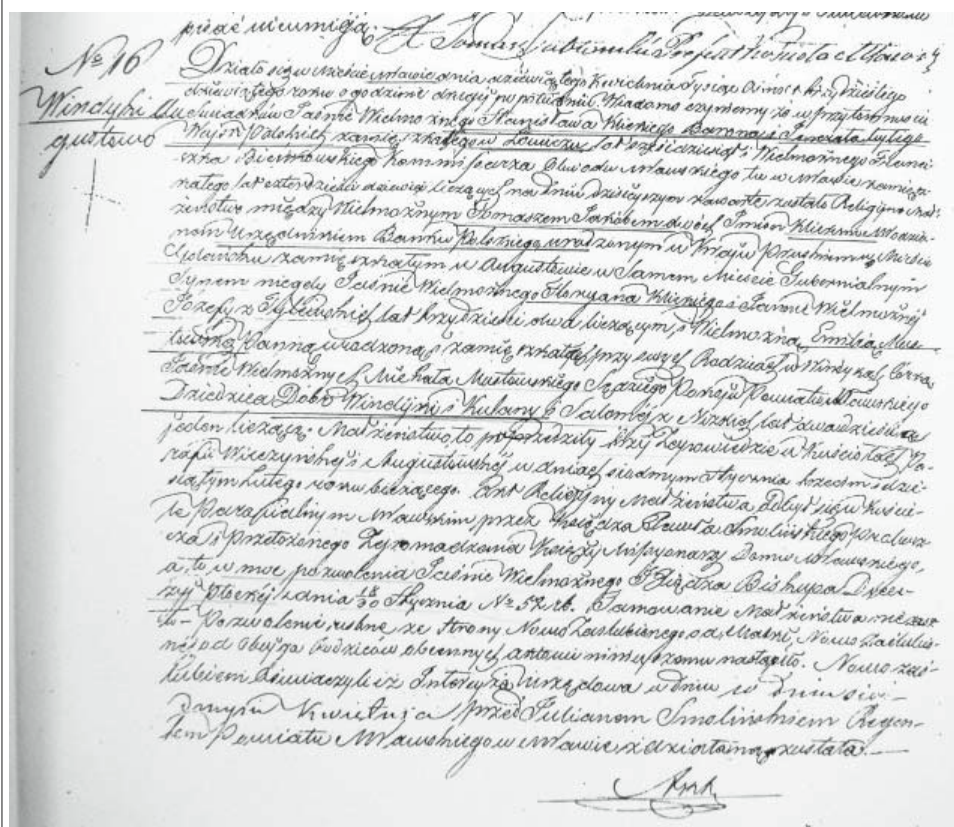 pisać nieumieją. X. Tomasz
№ 16
Windyki Au
gustowo
Działo się w Mieście Mławie dnia dziewiątego Kwietnia tysiąc ośmset trzydziestego
dziewiątego roku o godzinie drugiej po południu. Wiadomo czyniemy że w przytomności
świadków Jaśnie Wielmożnego Stanisława Klickiego Barona i Generała bytego
Wojsk Polskich zamięszkałego w Łowiczu, lat sześćdziesiąt i Wielmożnego Franci-
szka Kommissarza Obwodu Mławskiego tu w Mławie zamięsz-
kałego lat czterdzieści dziewięć liczących na dniu dzisieyszym zawarte zostało Religijne Mał-
żeństwo między Wielmożnym Tomaszem Jakóbem dwóch Imion Klickim Młodzia-
nem Urzędnikiem Banku Polskiego urodzonym w Kraju Pruskim w Mieście
Gdańsku zamięszkałym w Augustowie w Samem Mieście Gubernialnym
Synem niegdy Jaśnie Wielmożnego Floryana Klickiego i Jaśnie Wielmożnej
Józefy z lat trzydzieści dwa liczącym, i Wielmożną Emilią Mus-
Panną urodzoną i zamięszkałą przy swych Rodzicach w Windykach Córką
Jaśnie Wielmożnych Michała Sędziego Pokoju Powiatu Mławskiego
Dziedzica Dobr Windyki i Kulany i Salomeją z Nizkich, lat dwadzieścia
jeden liczącą. Małżeństwo to poprzedziły trzy Zapowiedzie w Kościołach Pa-
rafii Wieczyńskiej i Augustowskiej w dniach siódmym Stycznia trzecim i dzie-
siątym Lutego roku bieżącego. Akt Religijny Małżeństwa odbył się w Kości-
le Parafialnym Mławskim przez Księdza Pawła Smolińskiego
i Przełożonego Zgromadzenia Księży Missyonarzy Domu Mławskiego,
a to w moc pozwolenia Jaśnie Wielmożnego JXiędza Biskupa Diece-
zyi Płockiej z dnia 18/30 Stycznia № 52 rb. Tamowanie Małżeństwa nie zasz-
ło – Pozwolenie ustne ze strony Nowo Zaślubionego od Matki, Nowo Zaślubio-
nej od Obojga Rodziców obecnych aktowi niniejszemu nastąpiło. Nowo zaś-
lubieni Oświadczyli iż Intercyza Urzędowa w dniu w dniu sió-
dmym Kwietnia przed Julianem Smolińskiem Regen-
tem Powiatu Mławskiego w Mławie zdziałaną została. —